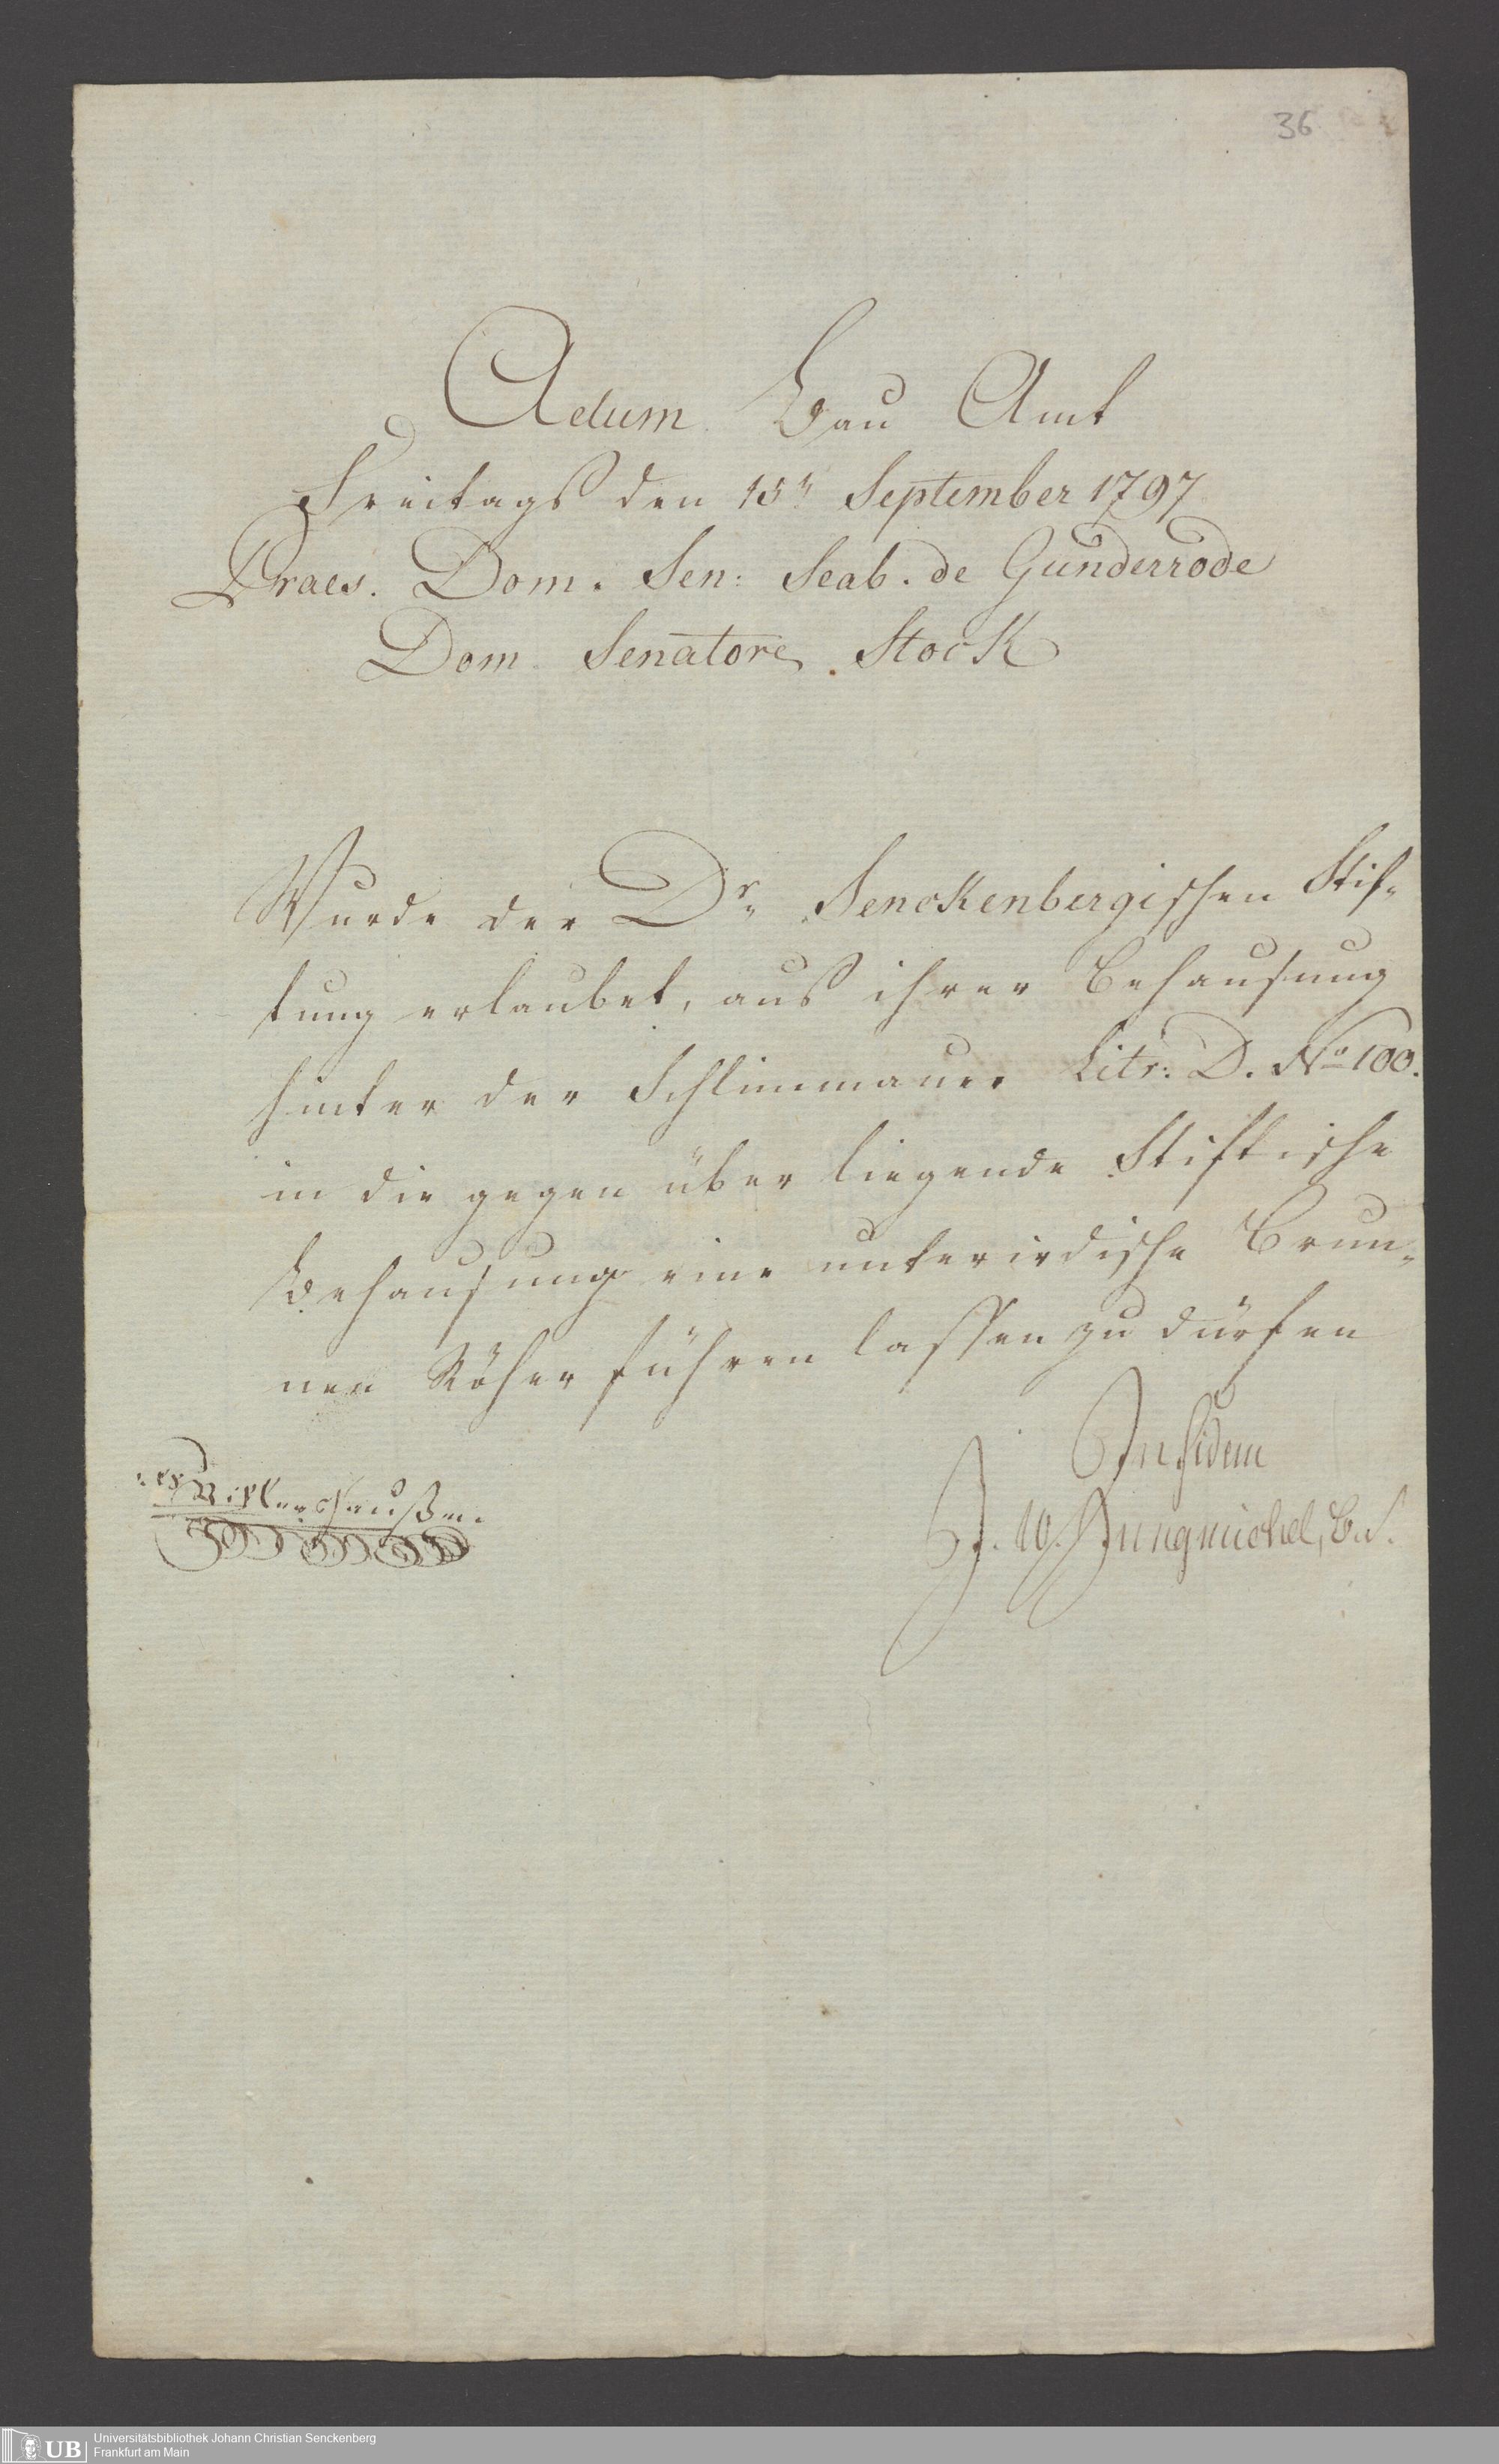 36
Actum Bau Amt
Freitags den 15n September 1797
Praes. Dom. Sen: Scab. de Günderrode
Dom. Senatore Stock
Wurde der Dr. Senckenbergischen Stif-
tung erlaubet, aus ihrer Behausung
hinter der Schlimmauer Litr: D. No 100.
in die gegen über liegende Stiftische
Behausung eine unterirdische Brun-
nen Röher führen lassen zu dürfen
In fidem
J. W. Jungmichel,
Universitätsbibliothek Johann Christian Senckenberg
Frankfurt am Main
UB